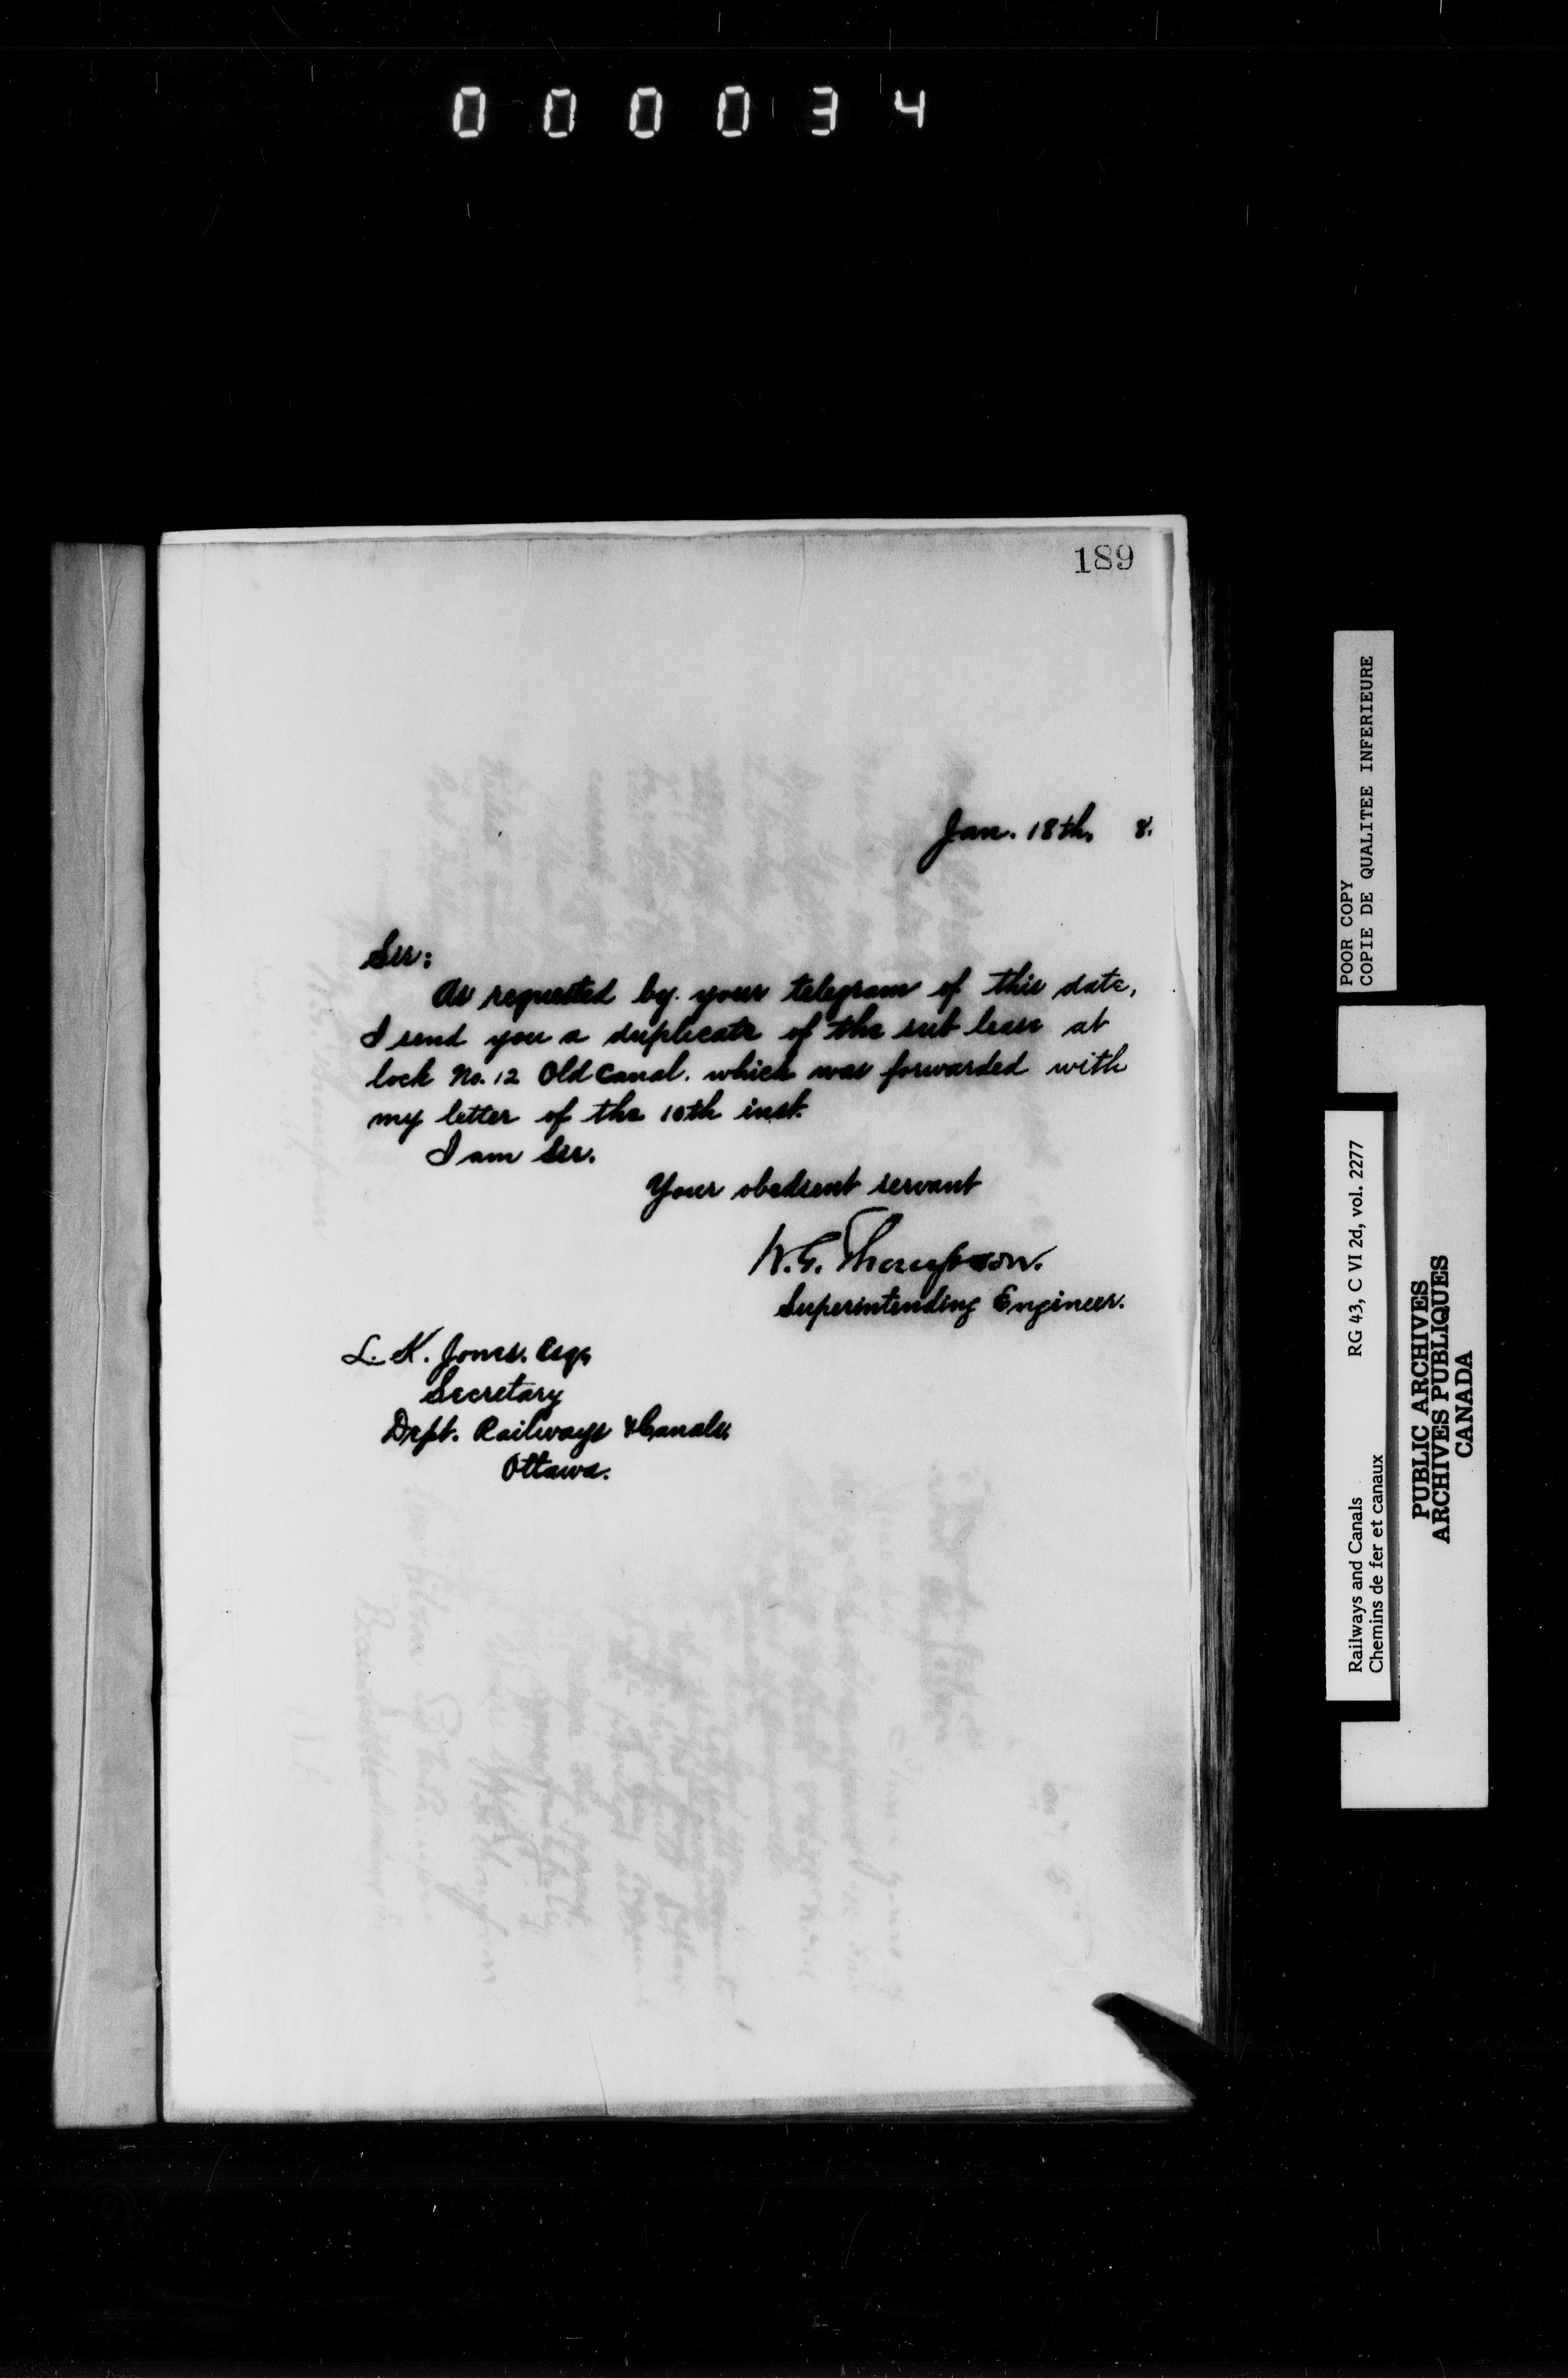 000034
189
Jan. 18th, 8.
Sir:
As requested by your telegram of this date,
I send you a duplicate of the sub lease at
lock No. 12 Old Canal. which was forwarded with
my letter of the 10th inst.
I am Sir.
Your obedient servant
W. G. Thompson.
Superintending Engineer.
L. K. Jones. Esq.
Secretary
Dept. Railways & Canals,
Ottawa.
POOR COPY
COPIE DE QUALITEE INFERIEURE
RG 43, C VI 2d, vol. 2277
Railways and Canals
Chemins de fer et canaux
PUBLIC ARCHIVES
ARCHIVES PUBLIQUES
CANADA